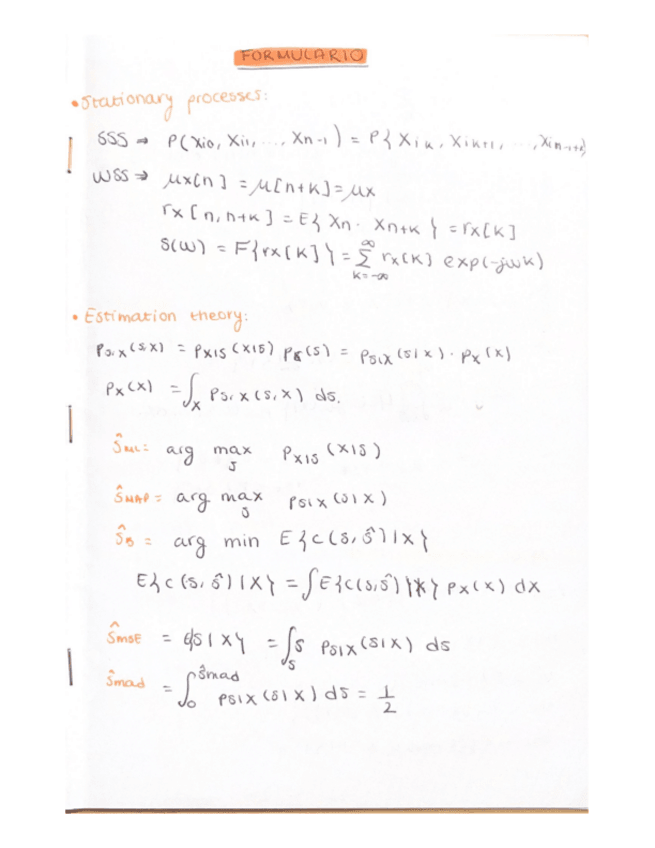 FORMULARIO
• Stationary processes:
SSS ⇒ P(Xi0, Xi1, ..., Xn-1) = P{Xik, Xik+1, ..., Xin-1+k}
WSS ⇒ μx[n] = μ[n+k] = μx
rx[n, n+k] = E{Xn · Xn+k} = rx[k]
S(ω) = F{rx[k]} = ∑_{k=-∞}^{∞} rx[k] exp(-jωk)
• Estimation theory:
Ps,x(s,x) = Px|s(x|s) Ps(s) = Ps|x(s|x) · Px(x)
Px(x) = ∫_X Ps,x(s,x) ds.
ŝML = arg max_s Px|s(x|s)
ŝMAP = arg max_s Ps|x(s|x)
ŝB = arg min E{c(s,ŝ)|x}
E{c(s,ŝ)|X} = ∫E{c(s,ŝ)|X} Px(x) dx
ŝMSE = E{s|x} = ∫_S s Ps|x(s|x) ds
ŝmad = ∫_0^{ŝmad} Ps|x(s|x) ds = 1/2